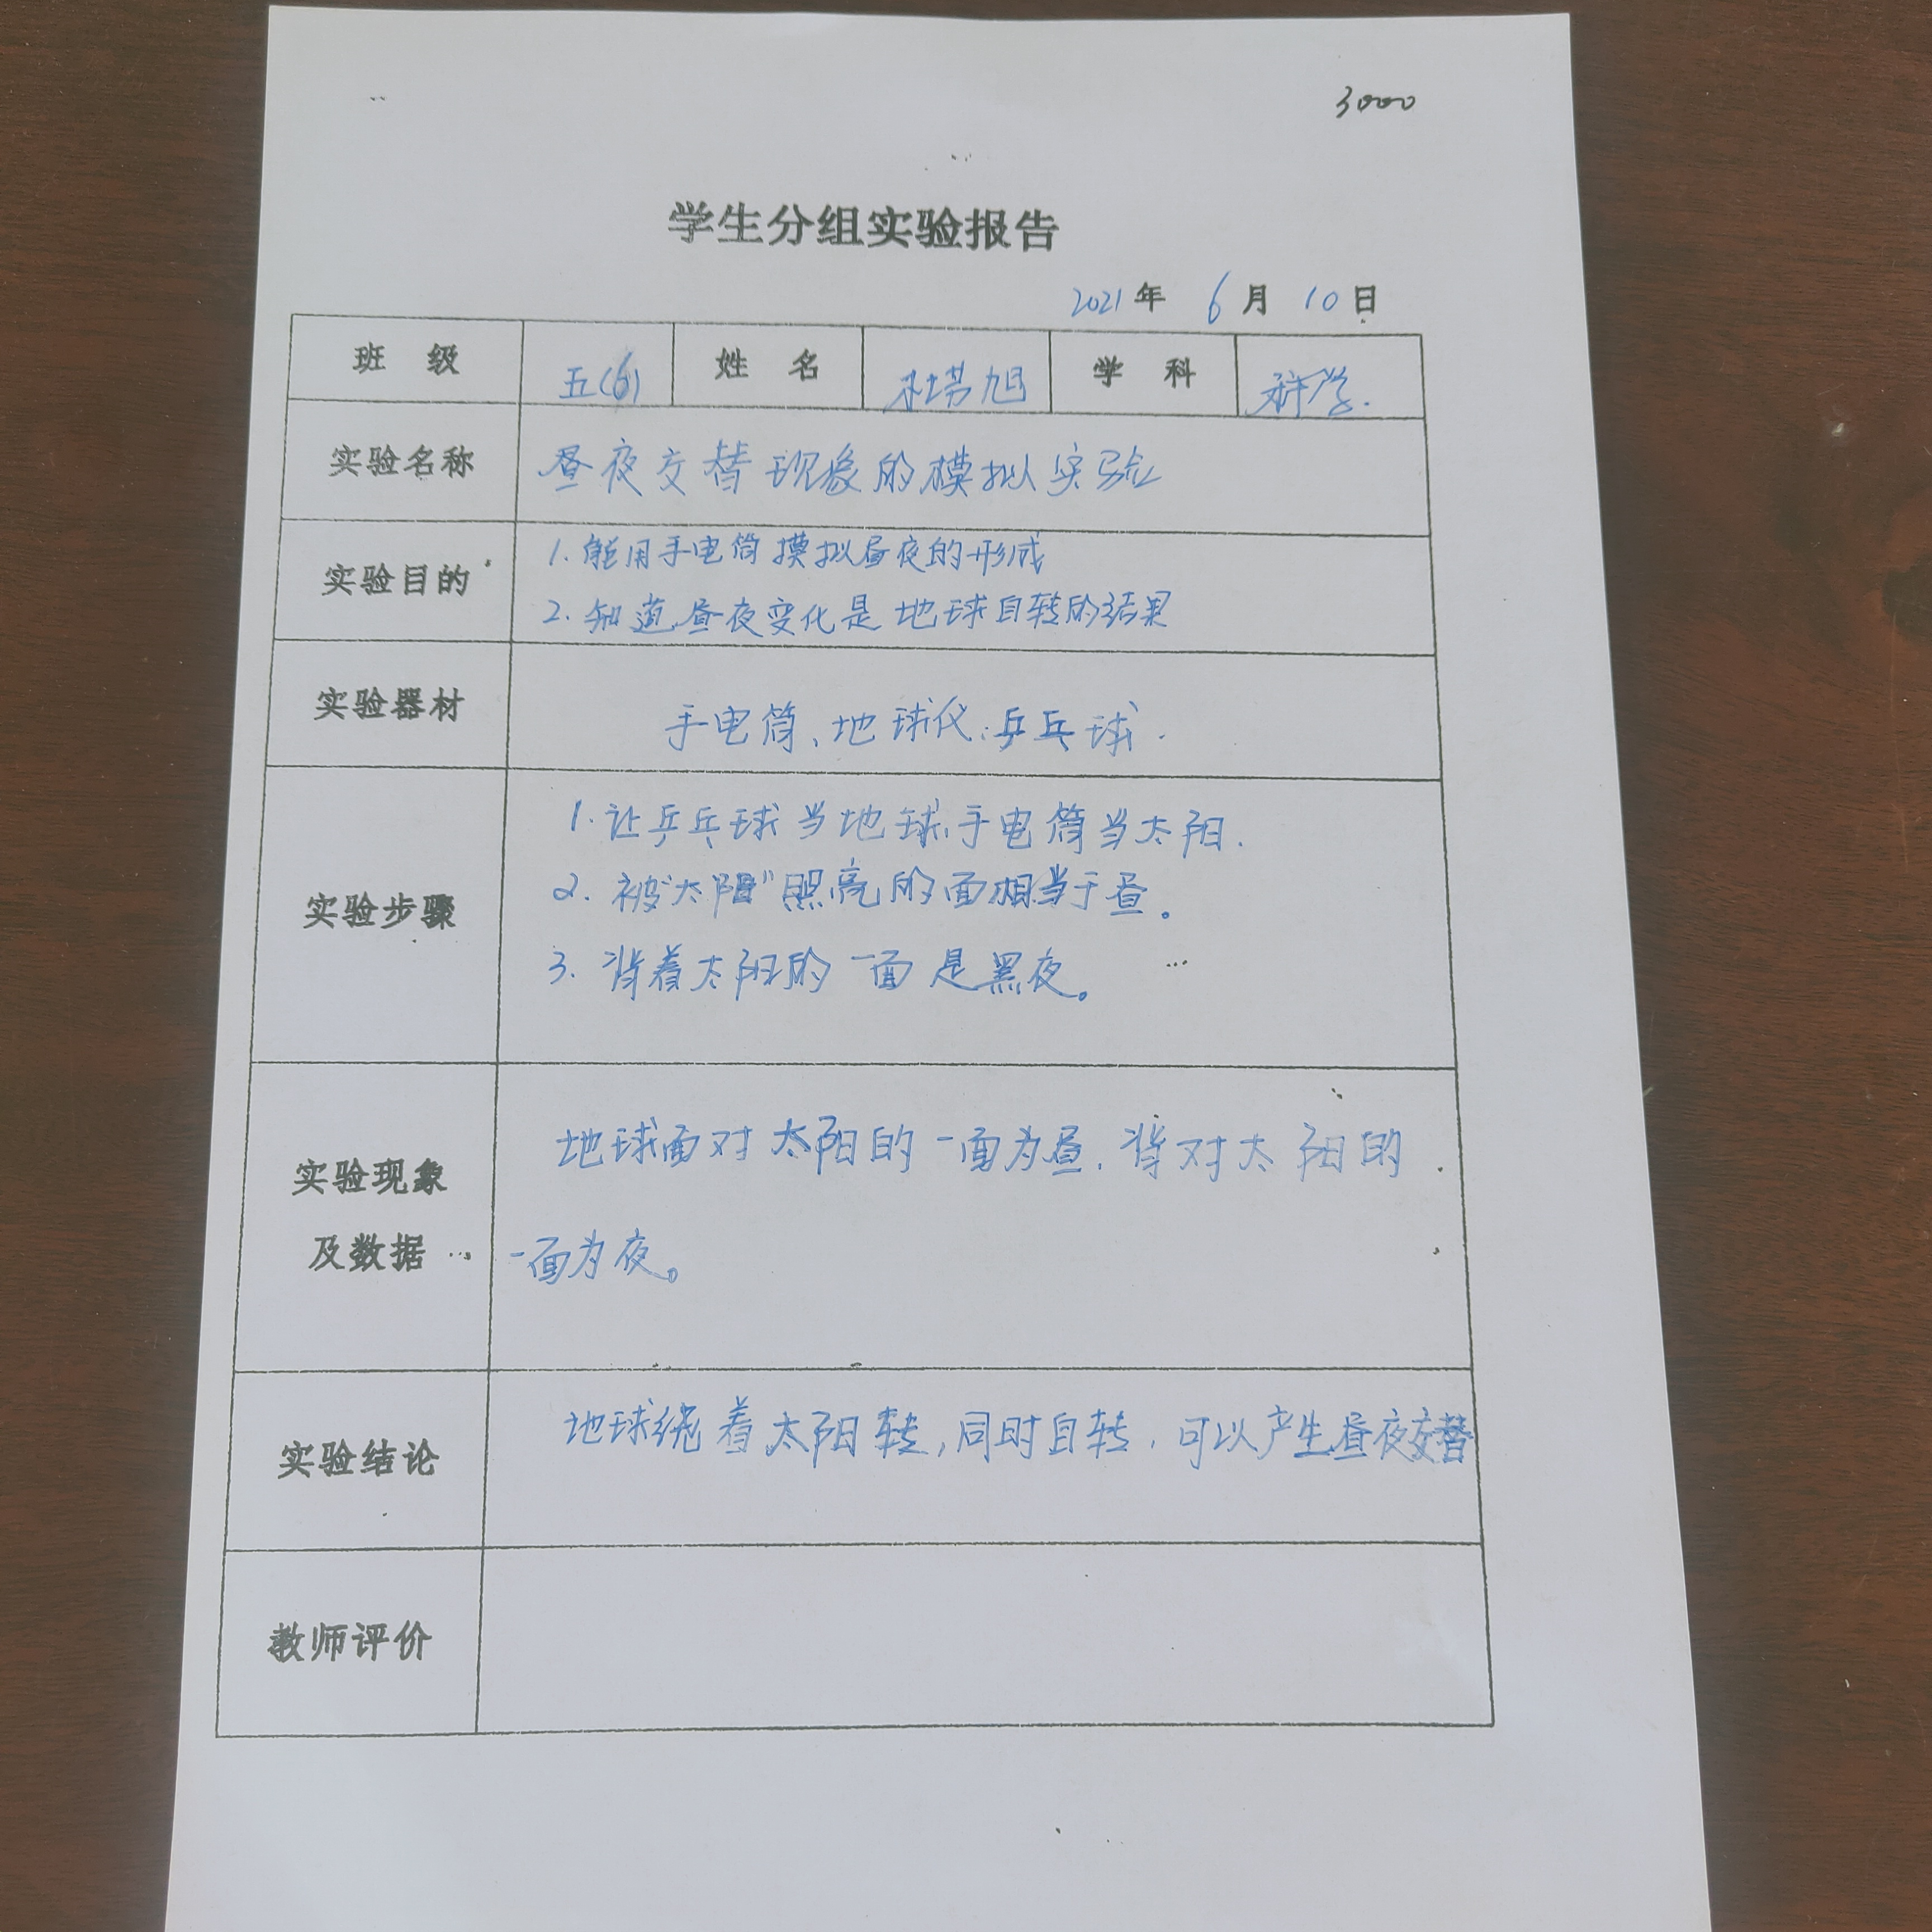 3000
学生分组实验报告
2021年 6月 10日
班 级 五(6) 姓 名 旭 学 科 科学.
实验名称 昼夜交替现象的模拟实验
实验目的
1. 能用手电筒摸拟昼夜的形成
2. 知道昼夜变化是地球自转的结果
实验器材 手电筒、地球仪、乒乓球.
实验步骤
1. 让乒乓球当地球,手电筒当太阳.
2. 被“太阳”照亮的面相当于昼。
3. 背着太阳的一面是黑夜。
实验现象
及数据
地球面对太阳的一面为昼,背对太阳的
一面为夜。
实验结论 地球绕着太阳转,同时自转,可以产生昼夜交替
教师评价